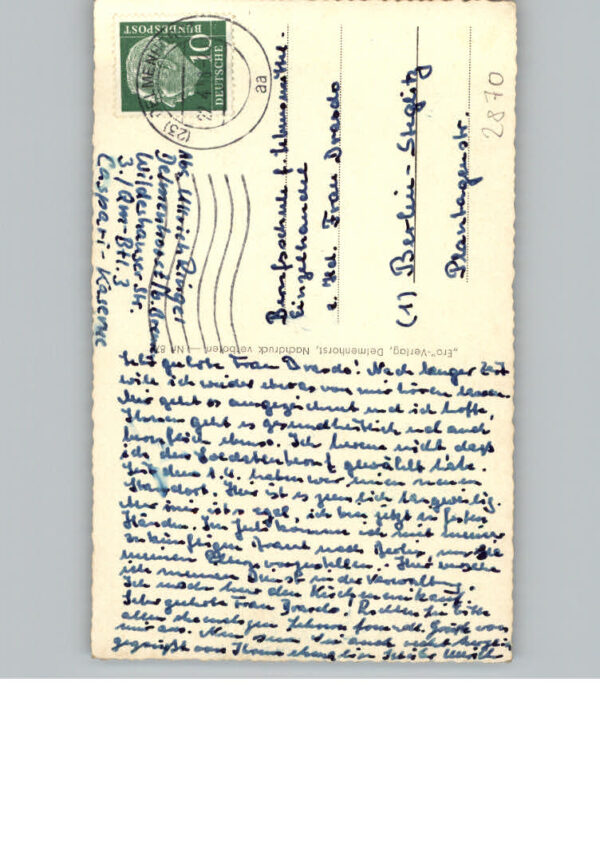 DEUTSCHE
BUNDESPOST
10
(23) DELMENHORST
aa
Abs. Ullrich
Delmenhorst
Wildeshauser Str.
3./Qm-Btl. 3
Caspari-Kaserne
Berufsschule f. Lebensmittel-
Einzelhandel
z. Hd. Frau Drasdo
(1) Berlin-Steglitz
Plantagenstr.
2870
„Ero"-Verlag, Delmenhorst, Nachdruck verboten — Nr.
Sehr geehrte Frau Drasdo! Nach langer Zeit
will ich wieder etwas von mir hören lassen.
Mir geht es ausgezeichnet und ich hoffe,
Ihnen geht es gesundheitlich und auch
beruflich ebenso. Ich bereue nicht, daß
ich den Soldatenberuf gewählt habe.
Seit dem 1.4. haben wir einen neuen
Standort. Hier ist es ziemlich langweilig.
Nur mir ist es egal, ich bin jetzt in festen
Händen. Im Juli komme ich mit meiner
zukünftigen Braut nach Berlin, um sie
meinen Eltern vorzustellen. Hier mache
ich meinen Dienst in der Verwaltung.
Ich mache hier den Kücheneinkauf.
Sehr geehrte Frau Drasdo! Richten Sie bitte
allen ehemaligen Grüße von
mir aus. Nun sein Sie auch recht herzlich
gegrüßt von Ihrem ehemaligen